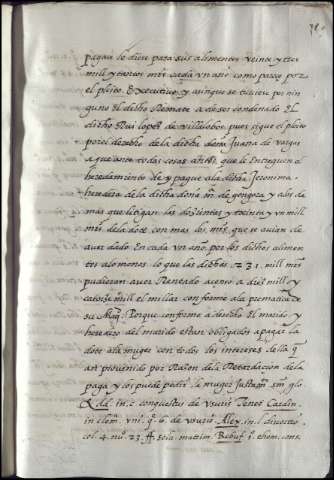 pagan lo dieu para sus alimentos veinte y tres
mill y tantos mrs cada un año como pareçe por
el pleito. Executivo y aunque se hiçiere por nin
guno El dicho Remate a de ser condenado El
dicho Rui lopez de Villalobos pues sigue el pleito
por el derecho de la dicha doña Juana de vargas
a que ante todas cosas antes que le Entreguen el
heredamiento de y pague a la dicha Jeronima
heredera de la dicha doña m. de gongora y a los de
mas que litigan las doscientas y treinta y un mill
mrs de la dote con mas los mrs que se auian de
auer dado En cada un año por los dichos alimen
tos a lo menos lo que las dichas 231. mill mrs
pudieran auer Rentado a çenso a diez mill y
catorze mill el millar conforme a la prematica de
su Mag. Porque conforme a derecho El marido y
heredero del marido estan obligados a pagar la
dote a la muger con todos los intereses della q
an prouenido por Razon de la Retardacion de la
paga y los puede pedir la muger
in c. conquestus de usuris
in clem. uni. q. 6. de usuris Alex. in l. diuortio
col. 4. nu. 23. ff. solu. matrim.